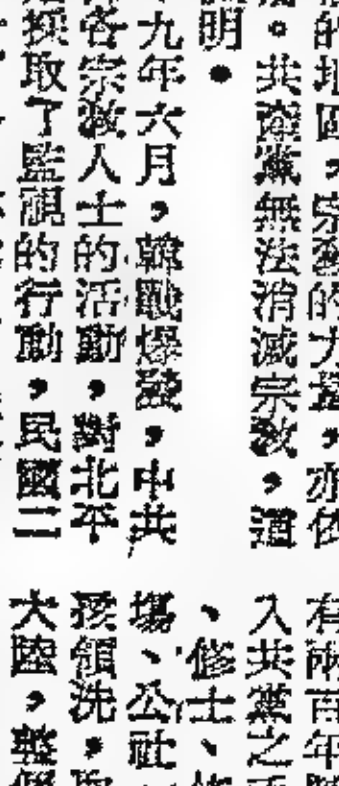 的地區，宗教的力量，亦依
。共產黨無法消滅宗教，這
明。
九年六月，韓戰爆發，中共
各宗教人士的活動，對北平
採取了監視的行動，民國二
有兩百年
入共黨之
、修士、
場、公社、
孩領洗，
大陸，整個